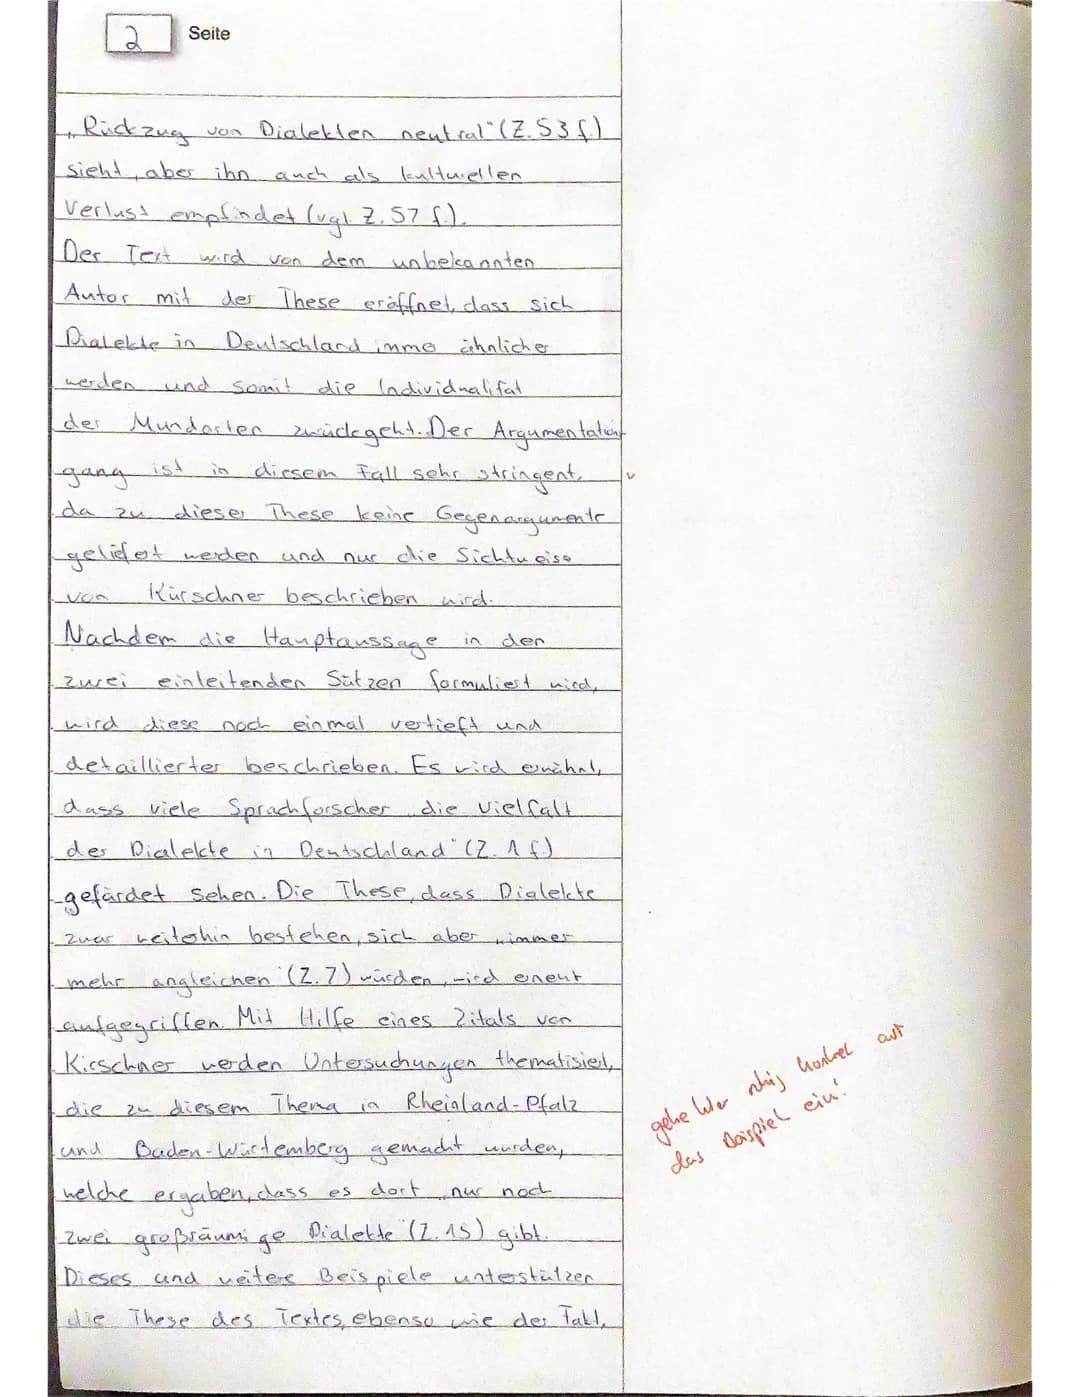 2 Seite
„Rückzug von Dialekten neutral" (Z. 53 f.)
sieht, aber ihn auch als kulturellen
Verlust empfindet (vgl. Z. 57 f.).
Der Text wird von dem unbekannten
Autor mit der These eröffnet, dass sich
Dialekte in Deutschland imme ähnlicher
werden und somit die Individualität
der Mundarten zurückgeht. Der Argumentations-
gang ist in diesem Fall sehr stringent,
da zu dieser These keine Gegenargumente
geliefert werden und nur die Sichtweise
von Kürschner beschrieben wird.
Nachdem die Hauptaussage in den
zwei einleitenden Sätzen formuliert wird,
wird diese noch einmal vertieft und
detaillierter beschrieben. Es wird erwähnt,
dass viele Sprachforscher „die Vielfalt
der Dialekte in Deutschland" (Z. 1 f.)
gefärdet sehen. Die These, dass Dialekte
zwar weiterhin bestehen, sich aber „immer
mehr angleichen" (Z. 7) würden, wird erneut
aufgegriffen. Mit Hilfe eines Zitats von
Kirschner werden Untersuchungen thematisiert,
die zu diesem Thema in Rheinland-Pfalz
und Baden-Würtemberg gemacht wurden,
welche ergaben, dass es dort „nur noch
zwei großräumige Dialekte" (Z. 15) gibt.
Dieses und weitere Beispiele unterstützen
die These des Textes, ebenso wie der Fakt,
gehe hier ruhig konkret auf
das Beispiel ein!